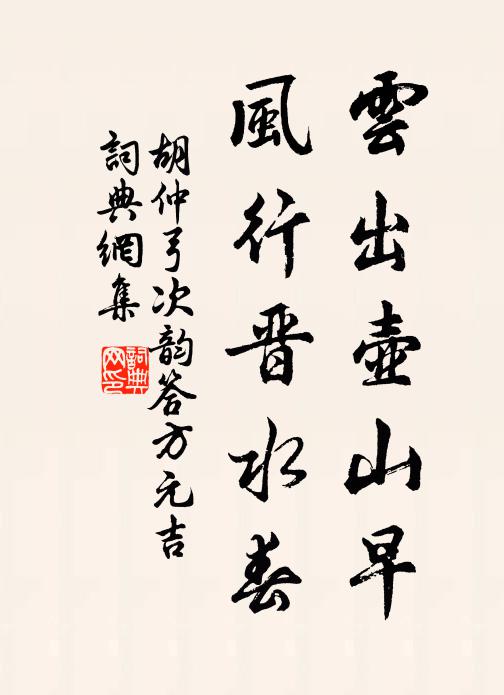 雲出壺山早
風行晋水春
胡仲弓次韵答方元吉
詞典網集
詞典网印